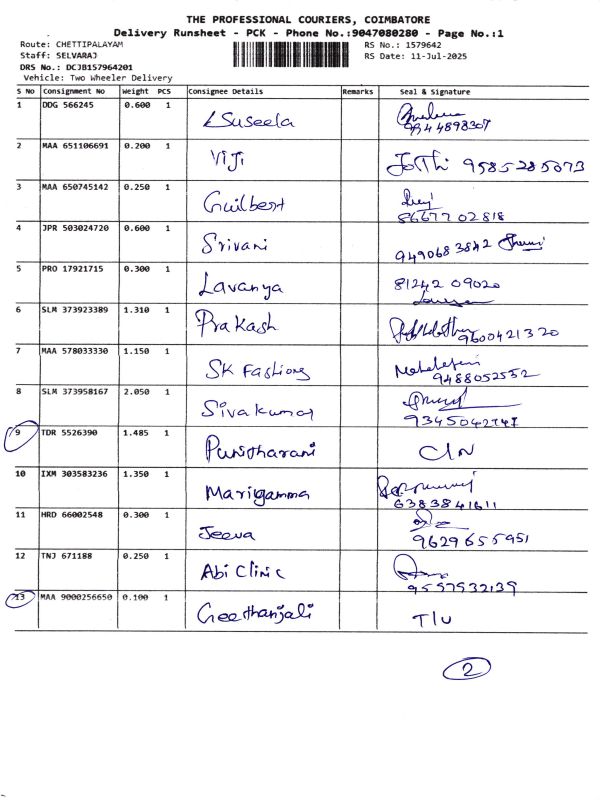 THE PROFESSIONAL COURIERS, COIMBATORE
Delivery Runsheet - PCK - Phone No.:9047080280 - Page No.:1
Route: CHETTIPALAYAM RS No.: 1579642
Staff: SELVARAJ RS Date: 11-Jul-2025
DRS No.: DCJB157964201
Vehicle: Two Wheeler Delivery
S No Consignment No Weight PCS Consignee Details Remarks Seal & Signature
1 DDG 566245 0.600 1 Suseela
9344898307
2 MAA 651106691 0.200 1 Viji Jothi 9585285073
3 MAA 650745142 0.250 1 Guilbert
86677 02818
4 JPR 503024720 0.600 1 Srivani 949068 3842
5 PRO 17921715 0.300 1 Lavanya 81242 09020
6 SLM 373923389 1.310 1 Prakash 9600421320
7 MAA 578033330 1.150 1 SK Fashions
9488052552
8 SLM 373958167 2.050 1 Sivakumar
9 TDR 5526390 1.485 1 Punitharani C/N
10 IXM 303583236 1.350 1 Marigamma
6383841611
11 HRD 66002548 0.300 1 Jeeva
9629655951
12 TNJ 671188 0.250 1 Abi Clinic
13 MAA 9000256650 0.100 1 Geethanjali T/U
2